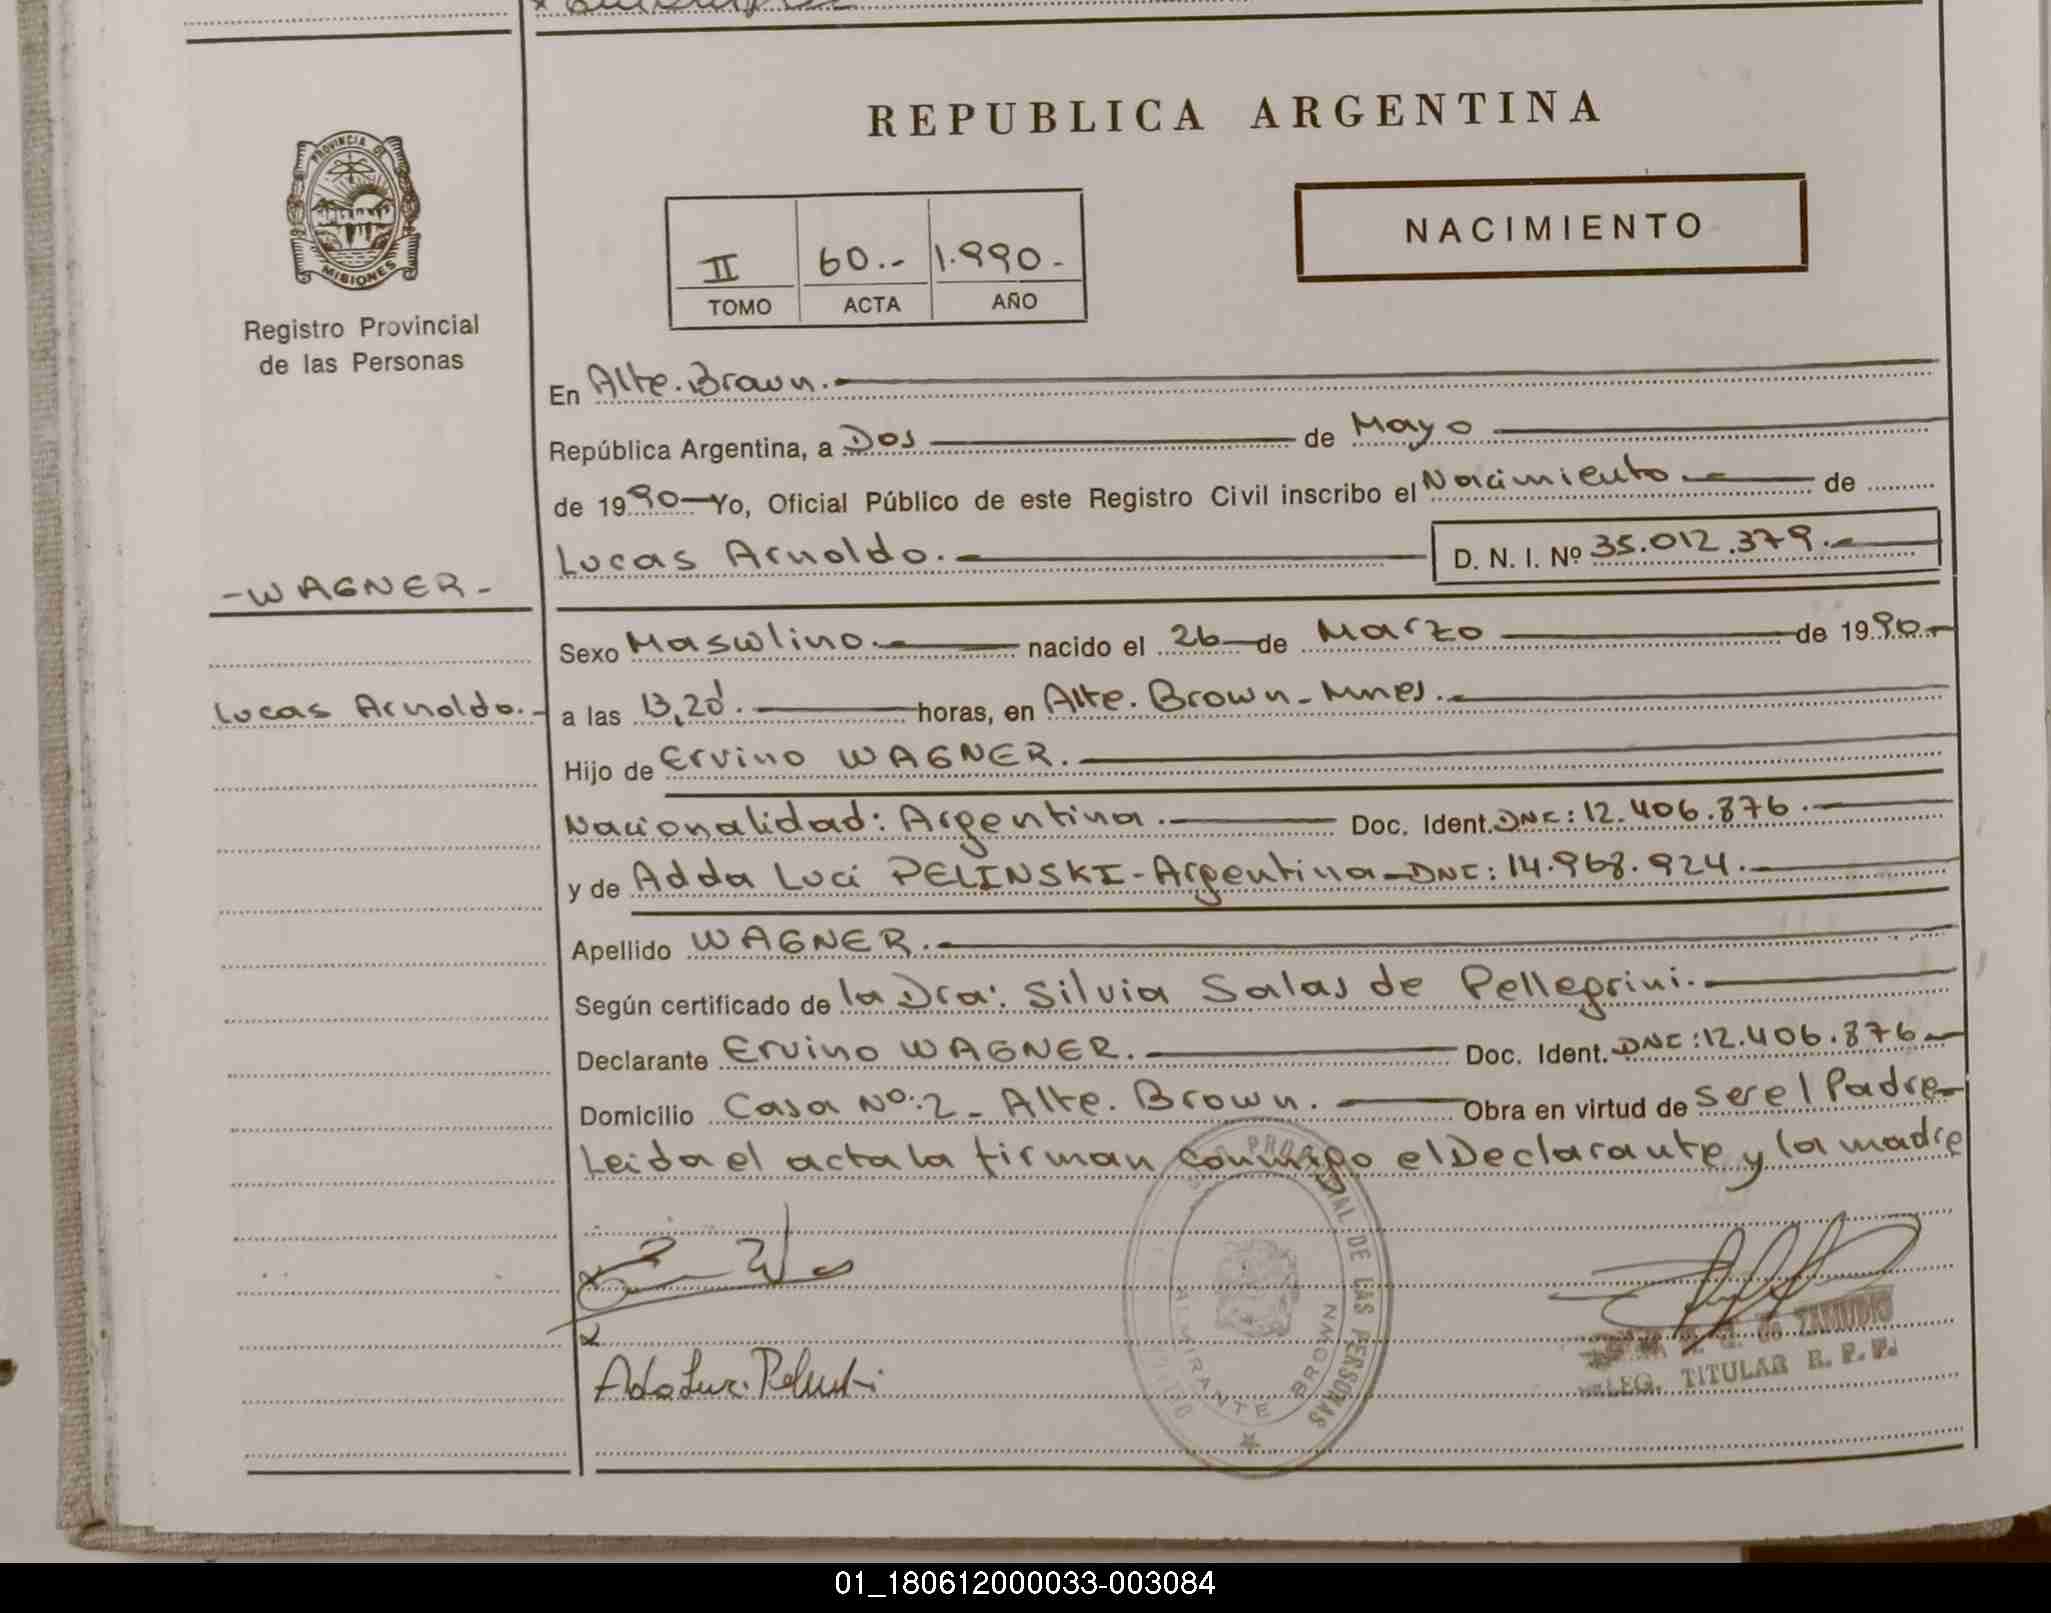 REPUBLICA ARGENTINA
PROVINCIA DE
MISIONES
Registro Provincial
de las Personas
II 60.- 1.990-
TOMO ACTA AÑO
NACIMIENTO
En Alte. Brown.
República Argentina, a Dos de Mayo
de 1990 Yo, Oficial Público de este Registro Civil inscribo el Nacimiento de
Lucas Arnoldo. D. N. I. Nº 35.012.379.
-WAGNER-
Sexo Masculino nacido el 26 de Marzo de 1990
Lucas Arnoldo.-
a las 13,20. horas, en Alte. Brown - Mnes.
Hijo de Ervino WAGNER.
Nacionalidad: Argentina. Doc. Ident. DNI: 12.406.876.
y de Adda Luci PELINSKI - Argentina - DNI: 14.968.924.
Apellido WAGNER.
Según certificado de la Dra: Silvia Salas de Pellegrini.
Declarante Ervino WAGNER. Doc. Ident. DNI: 12.406.876
Domicilio Casa Nº: 2 - Alte. Brown. Obra en virtud de ser el Padre
Leida el acta la firman conmigo el Declarante y la madre
PROVINCIAL DE LAS PERSONAS
ALMIRANTE BROWN
de ZAMUDIO
DELEG. TITULAR R. P. P.
01_180612000033-003084